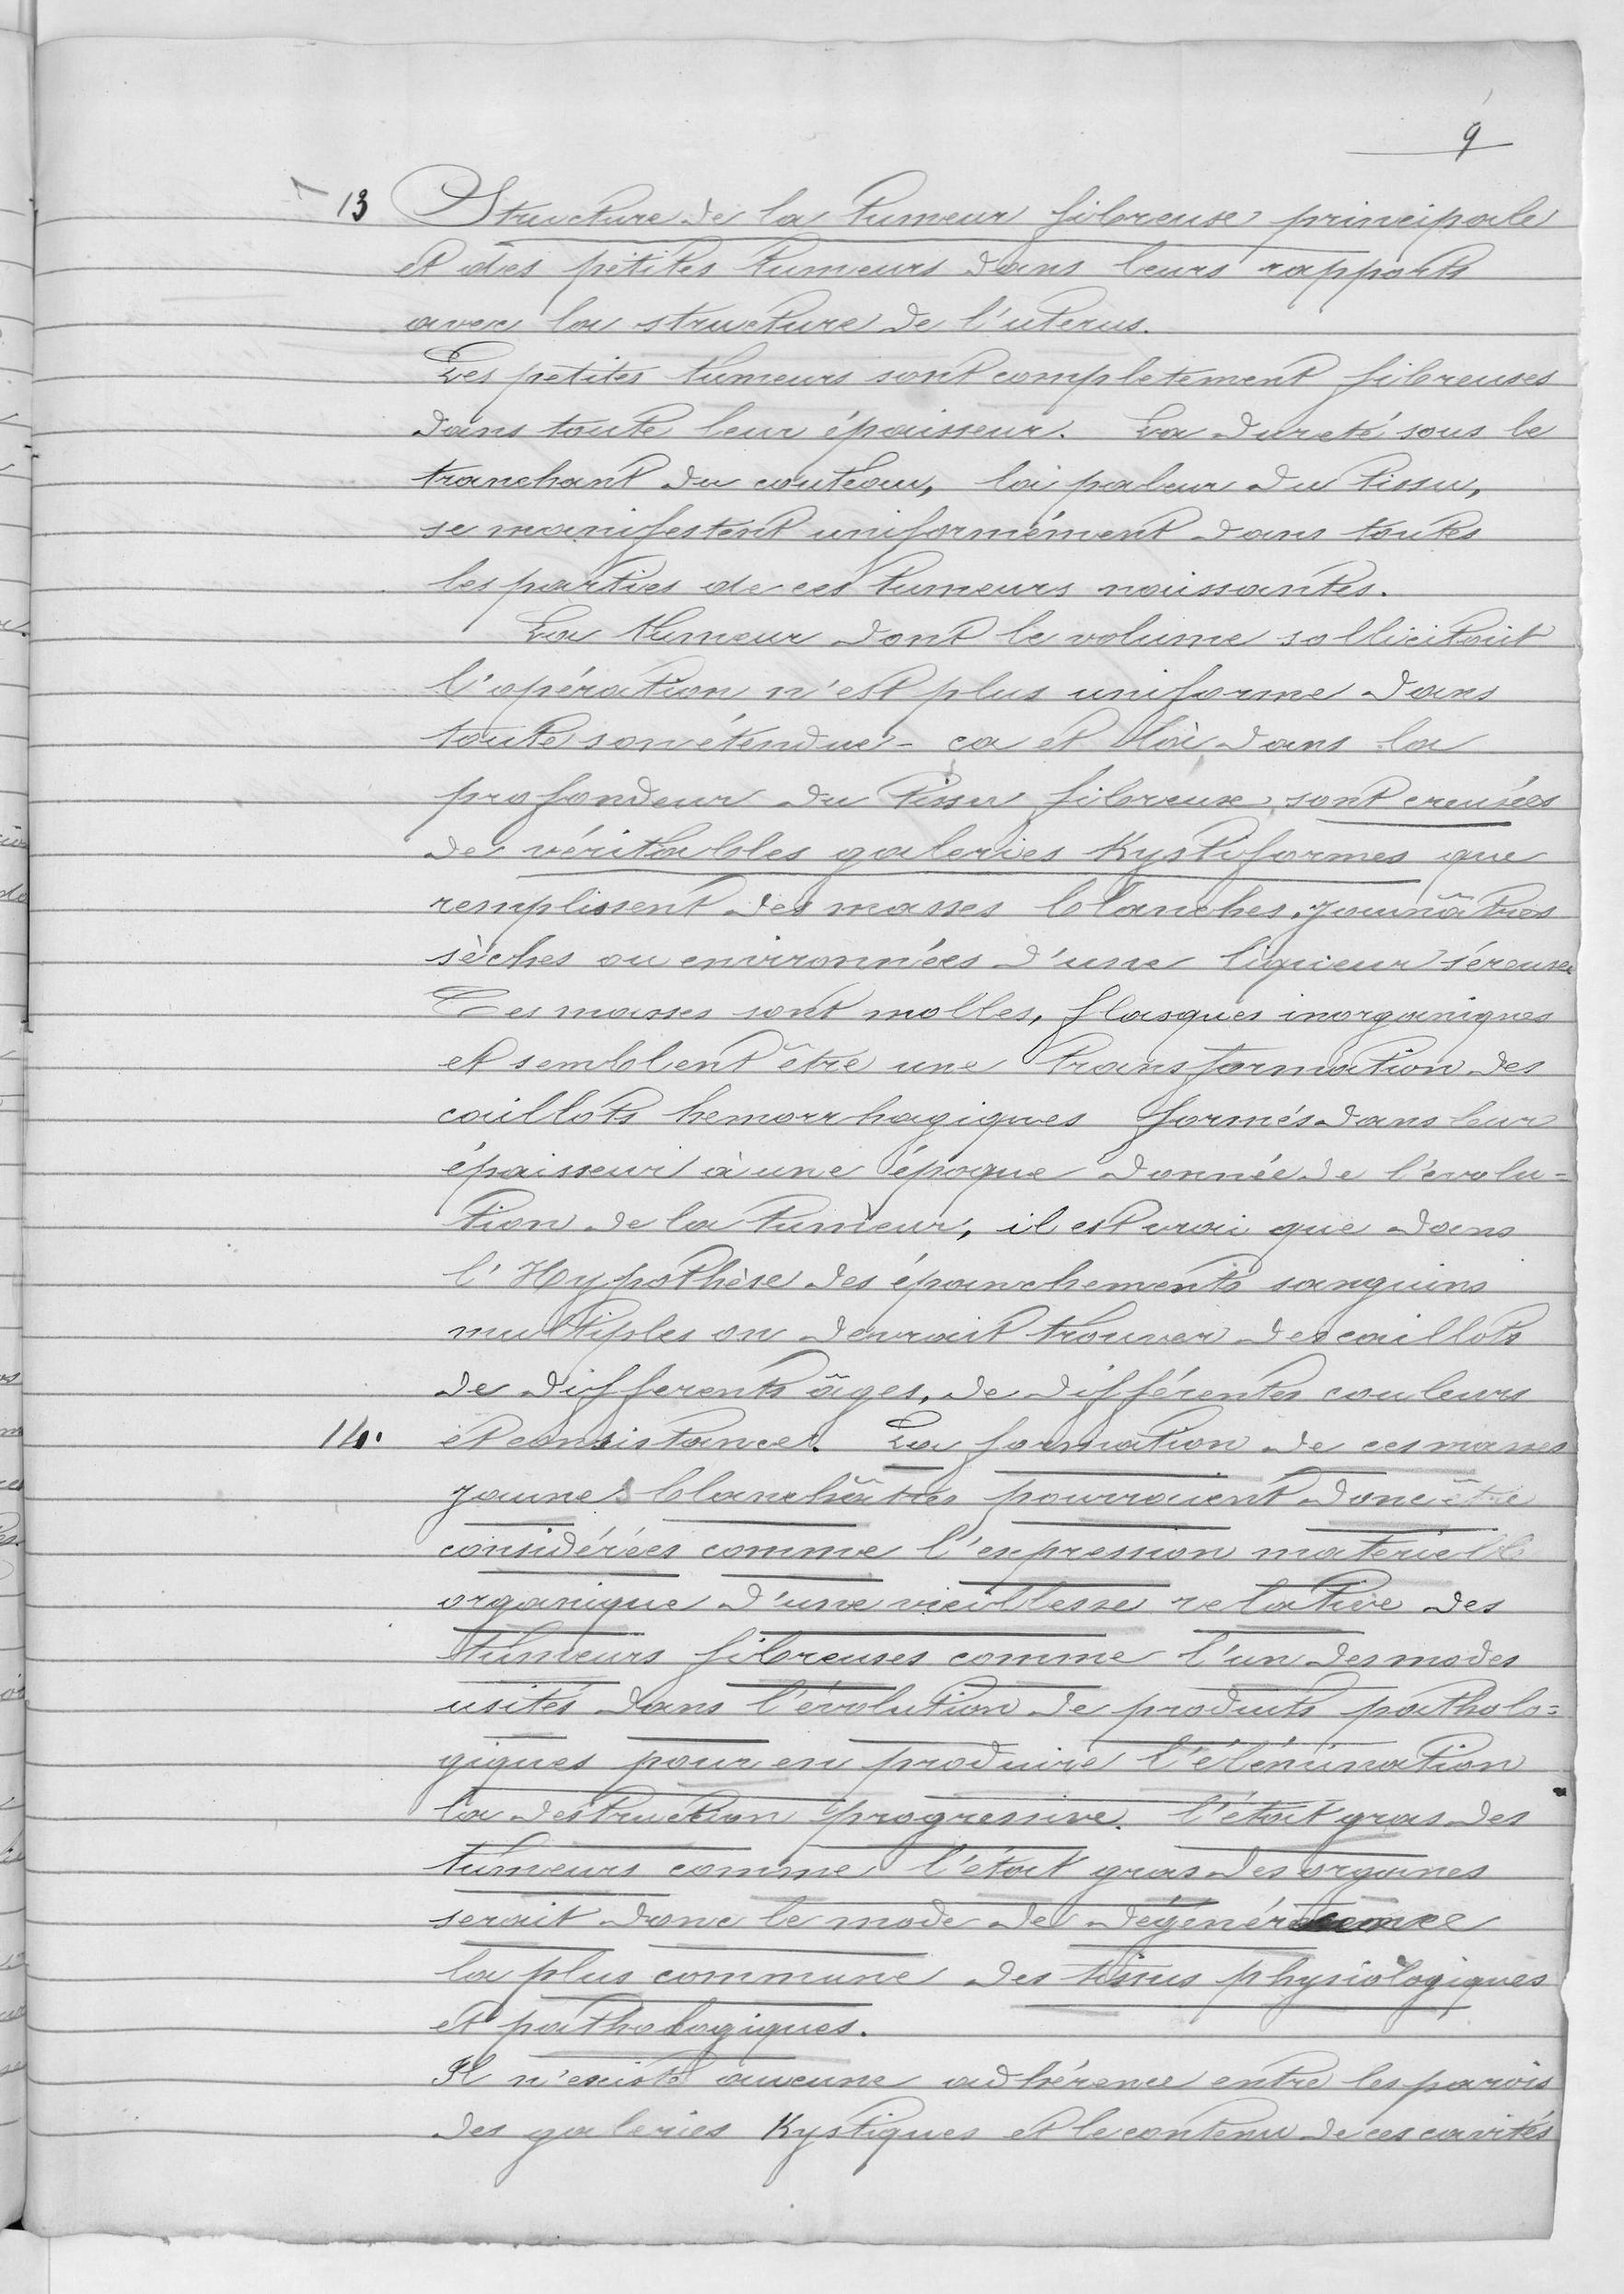 9
13 Structure de la tumeur fibreuse principale
et des petites tumeurs dans leurs rapports
avec la structure de l'uterus.
Les petites tumeurs sont completement fibreuses
dans toute leur épaisseur. La dureté sous le
tranchant du couteau, la paleur du tissu,
se manifestent uniformément dans toutes
les parties de ces tumeurs naissantes.
La tumeur dont le volume sollicitait
l'opération n'est plus uniforme dans
toute son étendue - ça et là dans la
profondeur du tissu fibreux, sont creusées
de véritables galeries Kystiformes que
remplissent des masses blanches, jaunâtres
sèches ou environnées d'une liqueur séreuse
Ces masses sont molles, flasques inorganiques
et semblent être une transformation des
caillots hemorrhagiques formés dans leur
épaisseur à une époque donnée de l'evolu=
tion de la tumeur, il est vrai que dans
l'Hypothèse des épanchements sanguins
multiples on devrait trouver des caillots
de differents âges, de différentes couleurs
14. et consistance. La formation de ces masses
jaunes blanchâtres pourraient donc être
considérées comme l'expression materielle
organique d'une vieillesse relative des
tumeurs fibreuses comme l'un des modes
usités dans l'évolution de produits patholo=
giques pour en produire l'élénination
la destruction progressive. l'état gras des
tumeurs comme l'état gras des organes
serait donc le mode de dégénérescence
la plus commune des tissus physiologiques
et pathologiques.
Il n'existe aucune adhérence entre les parois
des galeries Kystiques et le contenu de ces cavités